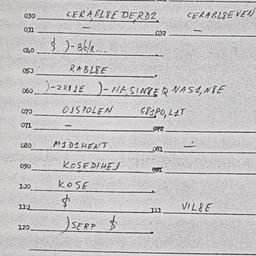 030 CERABL8E DE,RD2 CERABL8EVEN
031 — 032 —
040 $ )-B6/R...
050 RABL8E
060 )-ZRIJE )-NA,SIN8E Q NAS1,N8E
070 OJSPOLEN G81PO,L1T
071 — 072
080 M1D1HENT 081 —
090 KOSEDIHEJ 091
100 KOSE
110 $ 111 VIL8E
120 )SERP $